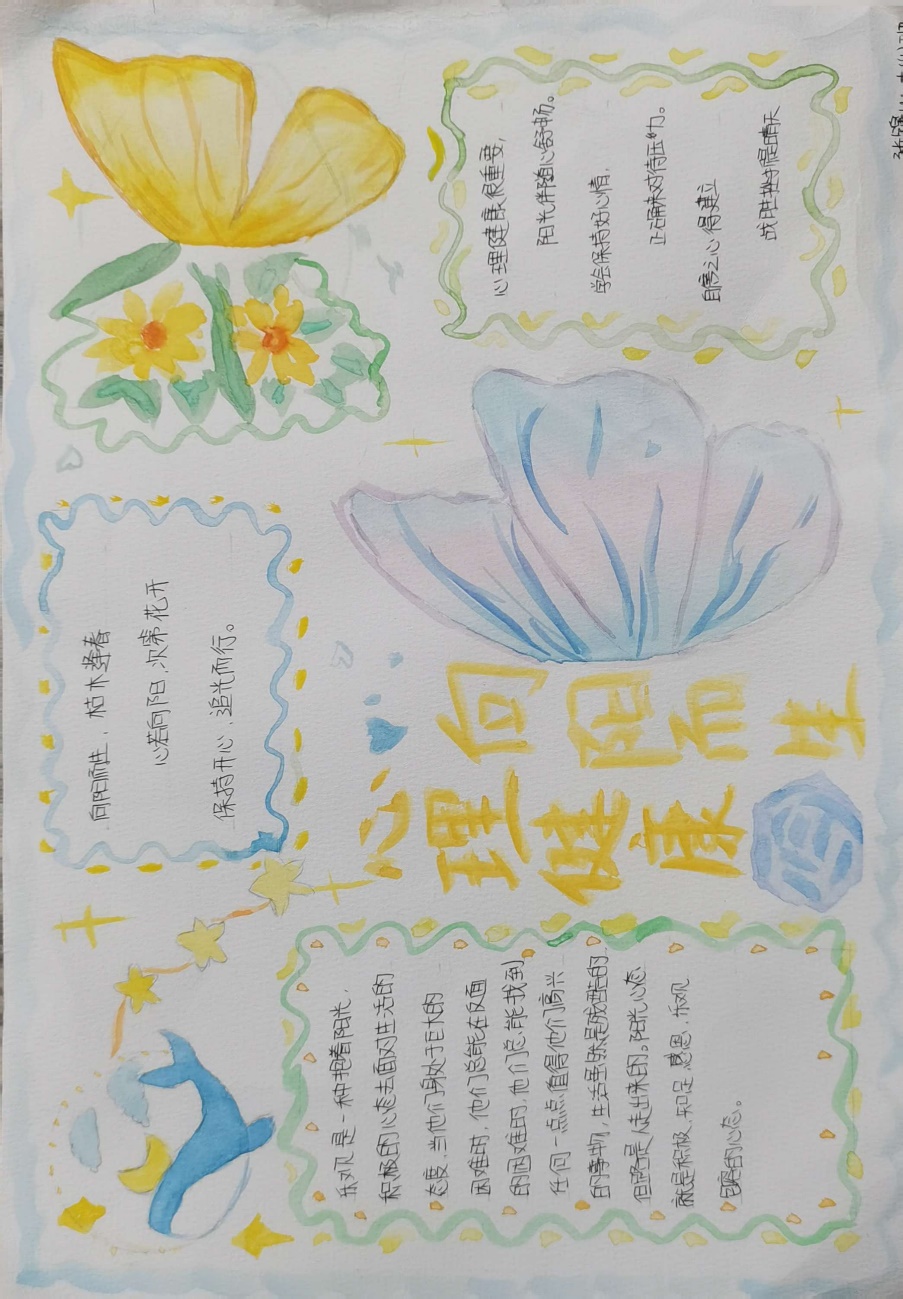 向阳而生，枯木逢春
心若向阳，次第花开
保持开心，追光而行。
心理健康
向阳而生
乐观是一种抱着阳光，
积极的心态去面对生活的
态度，当他们身处于巨大的
困难时，他们总能在反面
的困难时，他们总能找到
任何一点点值得他们高兴
的事物，生活虽然是残酷的
但路是人走出来的。阳光心态
就是积极、知足、感恩、乐观
的心态。
心理健康很重要，
阳光伴随心舒畅。
学会保持好心情，
正确来对待压力。
自信之心得建立
战胜挫折是晴天